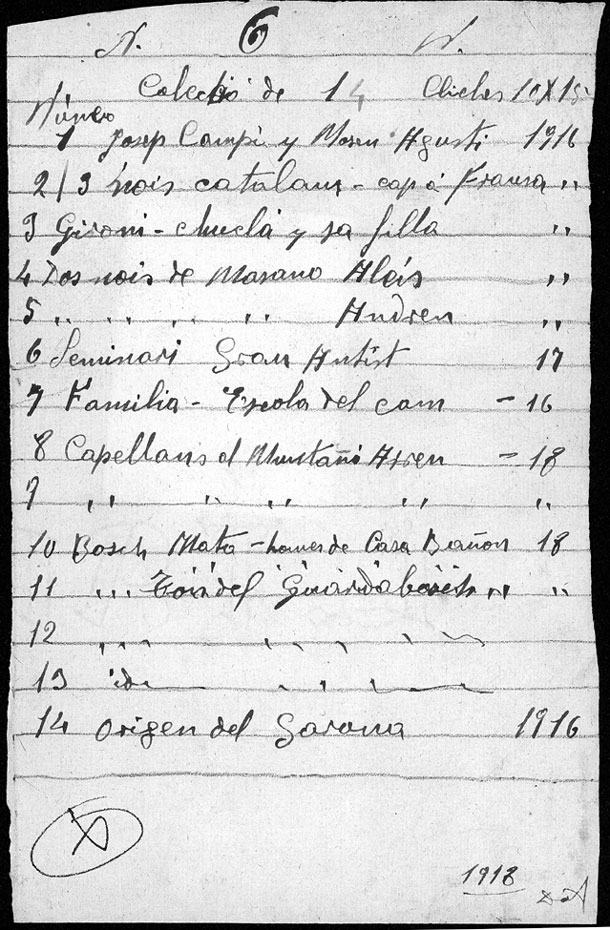 N. 6 N.
Colecció de 14 Clichés 10X15
Número
1 Josep Campi y Mosen Agusti 1916
2/3 Nois catalans - cap á Fransa "
3 Gironi - chuclá y sa filla "
4 Dos nois de Masano Aleis "
5 " " " " Andreu "
6 Seminari Gran Antist 17
7 Familia - Escola del cam - 16
8 Capellans d Muntañá - 18
9 " " " " "
10 Bosch Mata - homes de Casa Bañon 18
11 " " del Guardabosch " "
12 " " " " "
13 id " " "
14 Origen del Garona 1916
1918